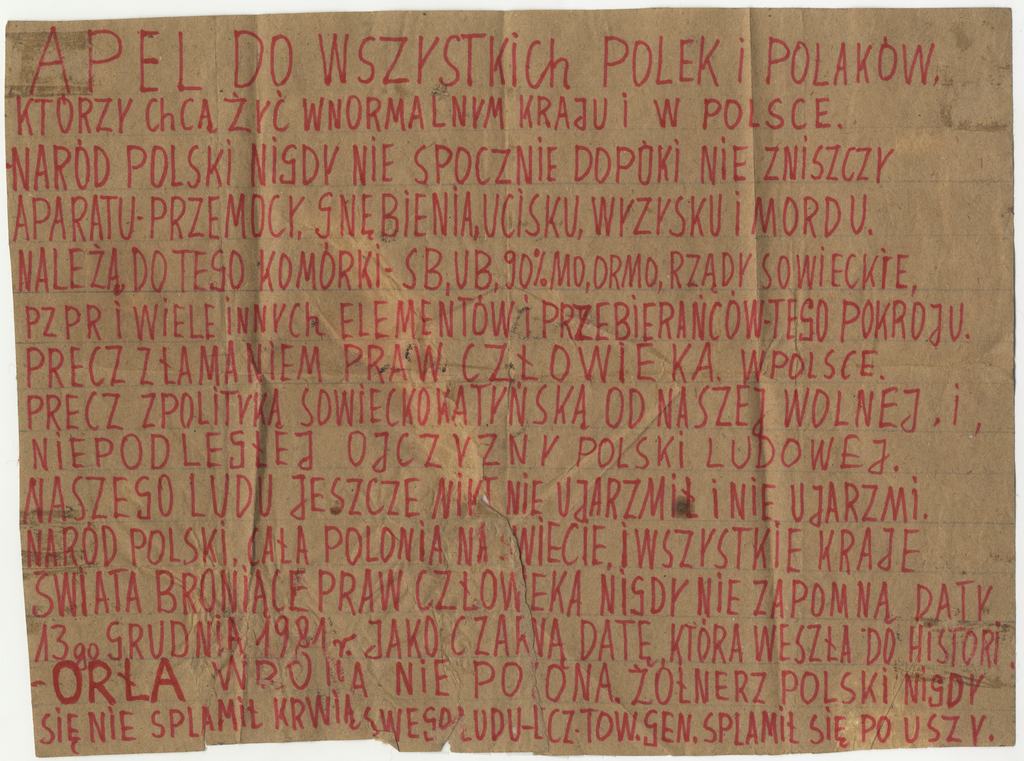 APEL DO WSZYSTKiCh POLEK i POLAKÓW,
KTÓRZY ChCĄ ŻYĆ WNORMALNYM KRAJU i W POLSCE.
-NARÓD POLSKi NIGDY NIE SPOCZNIE DOPÓKI NIE ZNISZCZY
APARATU-PRZEMOCY, GNĘBIENIA, UCISKU, WYZYSKU i MORDU.
NALEŻĄ, DO TEGO KOMÓRKI- SB, UB, 90% MO, ORMO, RZĄDY SOWIECKIE,
PZPR i WIELE iNNYCh ELEMENTÓW i PRZEBIERAŃCÓW-TEGO POKROJU.
PRECZ ZŁAMANIEM PRAW CZŁOWIEKA. WPOLSCE.
PRECZ ZPOLITYKĄ SOWIECKOKATYŃSKĄ OD NASZEJ WOLNEJ. i,
NIEPODLEGŁEJ OJCZYZNY POLSKi LUDOWEJ.
NASZEGO LUDU JESZCZE NIKT NIE UJARZMIŁ i NIE UJARZMI.
NARÓD POLSKI, CAŁA POLONIA NA WIECIE, iWSZYSTKIE KRAJE
ŚWIATA BRONIĄCE PRAW CZŁOWEKA NIGDY NIE ZAPOMNĄ DATY
13go GRUDNIA 1981r. JAKO CZARNĄ DATĘ, KTÓRA WESZŁA DO HISTORI.
-ORŁA WRONA NIE PO ONA. ŻÓŁNERZ POLSKI NIGDY
SIĘ NIE SPLAMIŁ KRWIĄ SWEGO LUDU-LCZ-TOW. GEN. SPLAMIŁ SIĘ PO USZY.